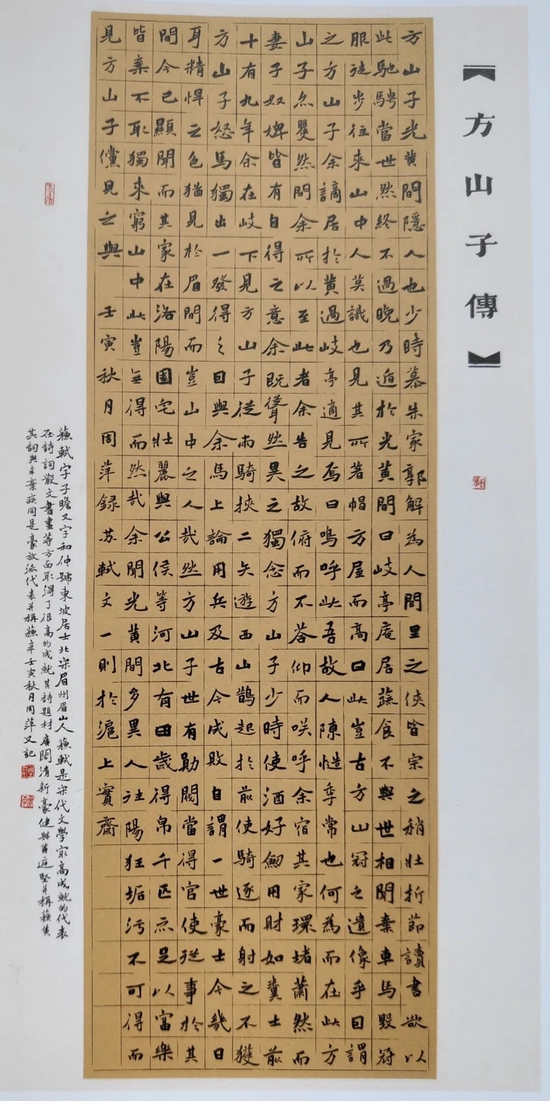 【方山子傳】
方山子光黃間隱人也少時慕朱家郭解為人閭里之俠皆宗之稍壯折節讀書欲以
此馳騁當世然終不遇晚乃遁於光黃間曰岐亭庵居蔬食不與世相聞棄車馬毀冠
服徒步往來山中人莫識也見其所著帽方屋而高曰此豈古方山冠之遺像乎因謂
之方山子余謫居於黃過岐亭適見焉曰嗚呼此吾故人陳慥季常也何為而在此方
山子亦矍然問余所以至此者余告之故俯而不答仰而咲呼余宿其家環堵蕭然而
妻子奴婢皆有自得之意余既聳然異之獨念方山子少時使酒好劍用財如糞土前
十有九年余在岐下見方山子從兩騎挾二矢遊西山鵲起於前使騎逐而射之不獲
方山子怒馬獨出一發得之因與余馬上論用兵及古今成敗自謂一世豪士今幾日
耳精悍之色猶見於眉間而豈山中之人哉然方山子世有勛閥當得官使從事於其
間今已顯聞而其家在洛陽園宅壯麗與公侯等河北有田歲得帛千匹亦足以富樂
皆棄不取獨來窮山中此豈無得而然哉余聞光黃間多異人往陽狂垢污不可得而
見方山子儻見之與 壬寅秋月周萍録苏軾文一則於滬上實齋
蘇軾字子瞻又字和仲號東坡居士北宋眉州眉山人蘇軾是宋代文學最高成就的代表
在詩詞散文書畫等方面取得了很高的成就其詩題材廣闊清新豪健與黃庭堅并稱蘇黃
其詞與辛棄疾同是豪放派代表并稱蘇辛壬寅秋月周萍又記